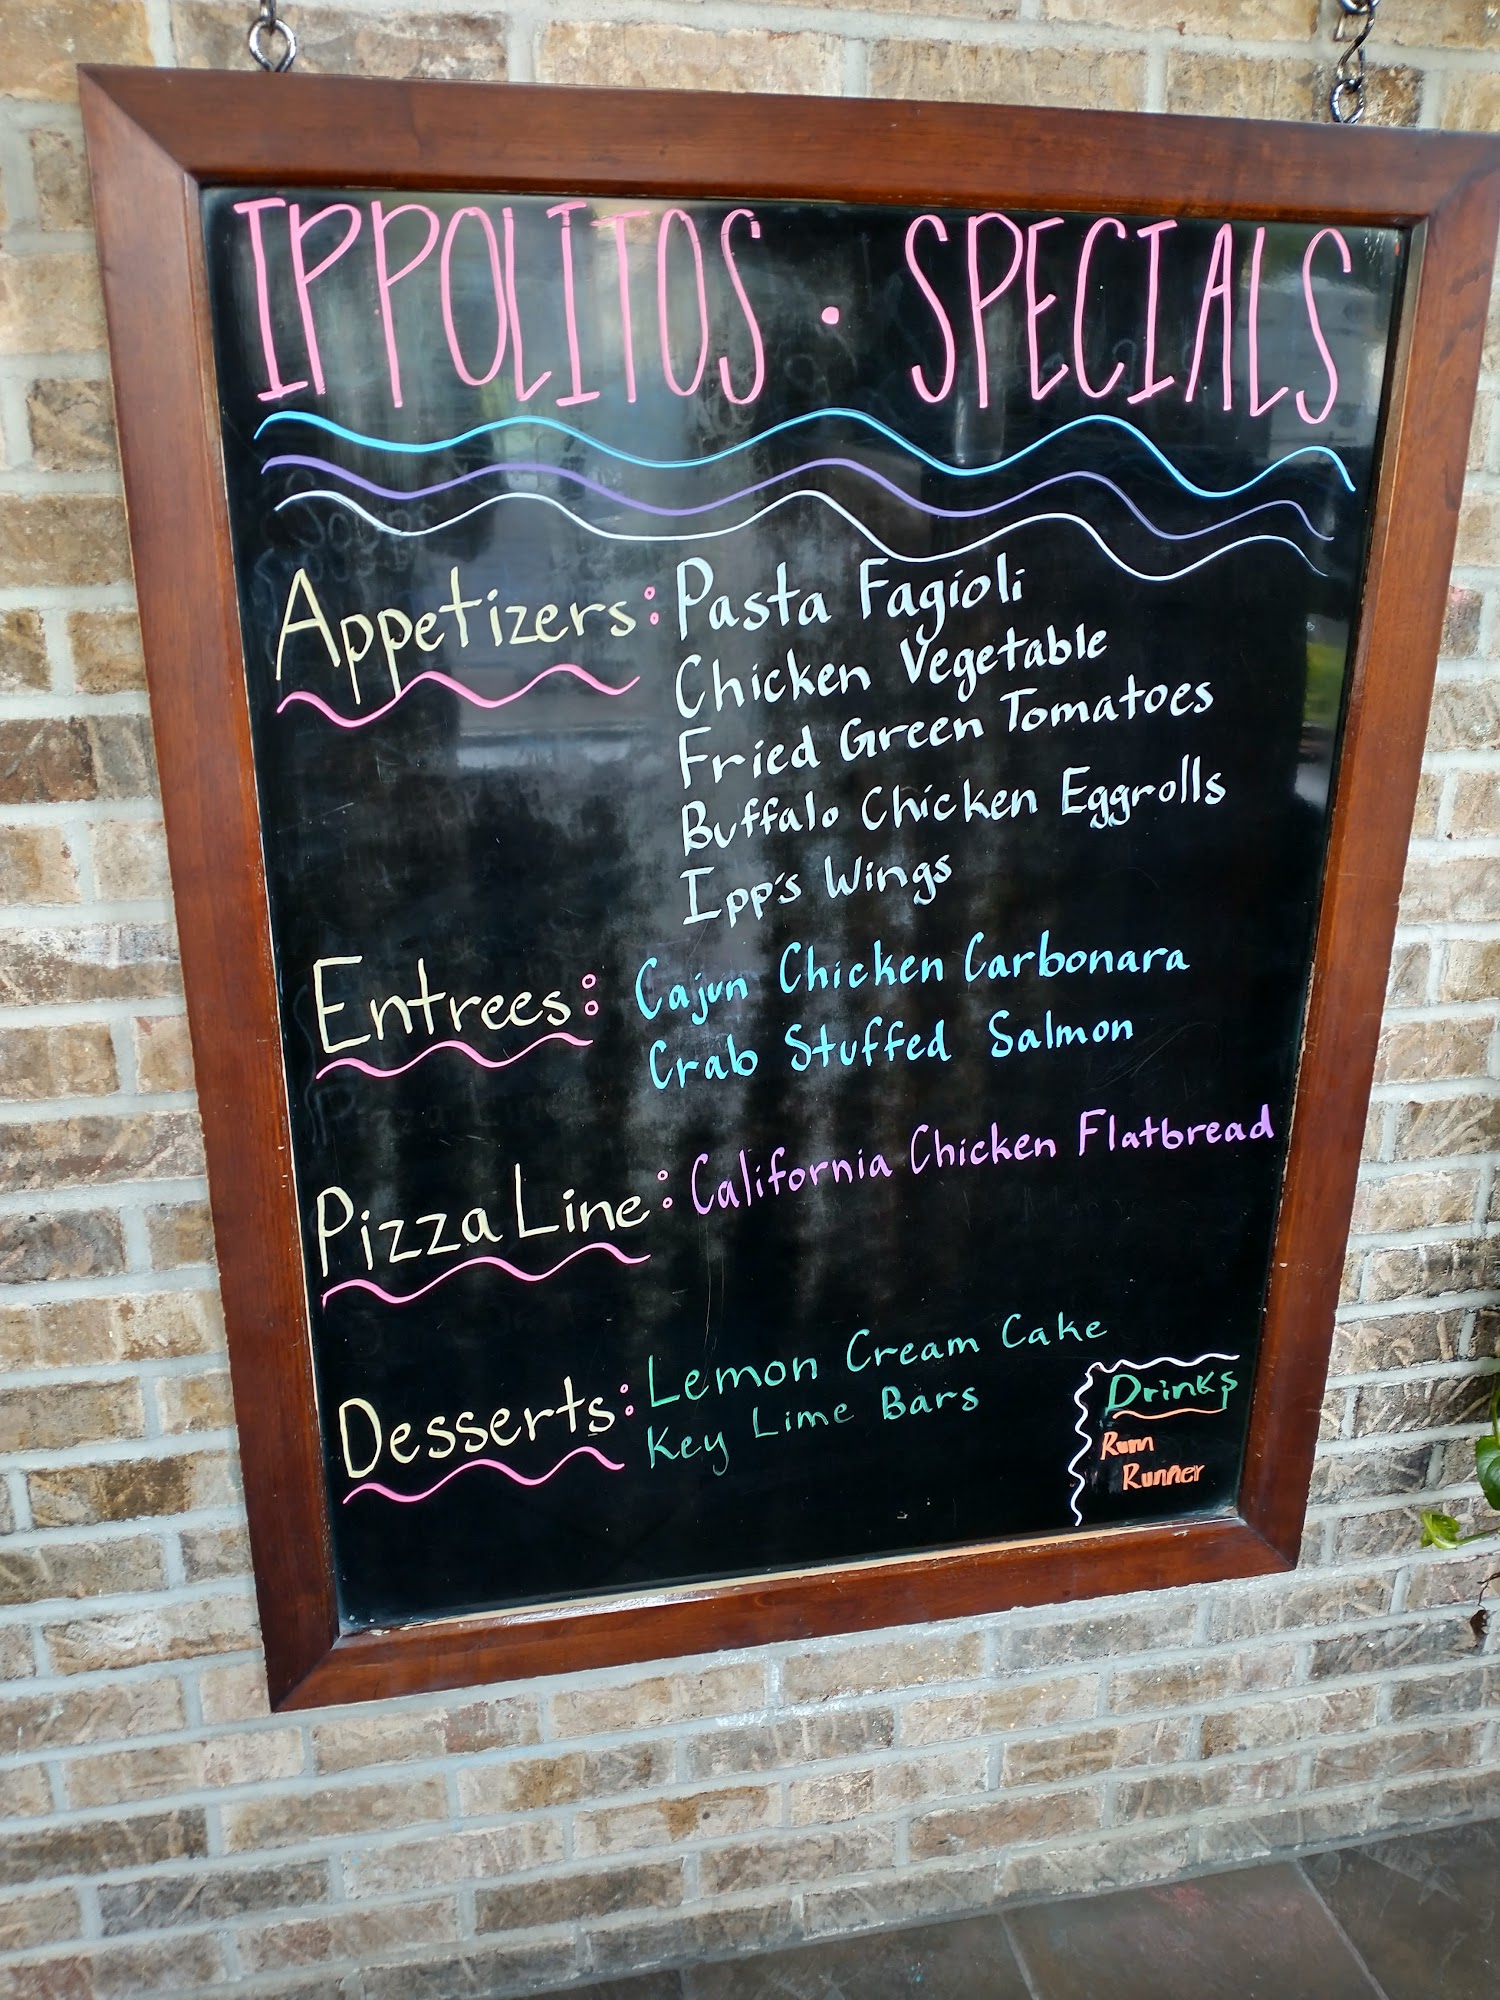 IPPOLITOS · SPECIALS
Appetizers: Pasta Fagioli
Chicken Vegetable
Fried Green Tomatoes
Buffalo Chicken Eggrolls
Ipp's Wings
Entrees: Cajun Chicken Carbonara
Crab Stuffed Salmon
Pizza Line: California Chicken Flatbread
Desserts: Lemon Cream Cake
Key Lime Bars
Drinks
Rum
Runner